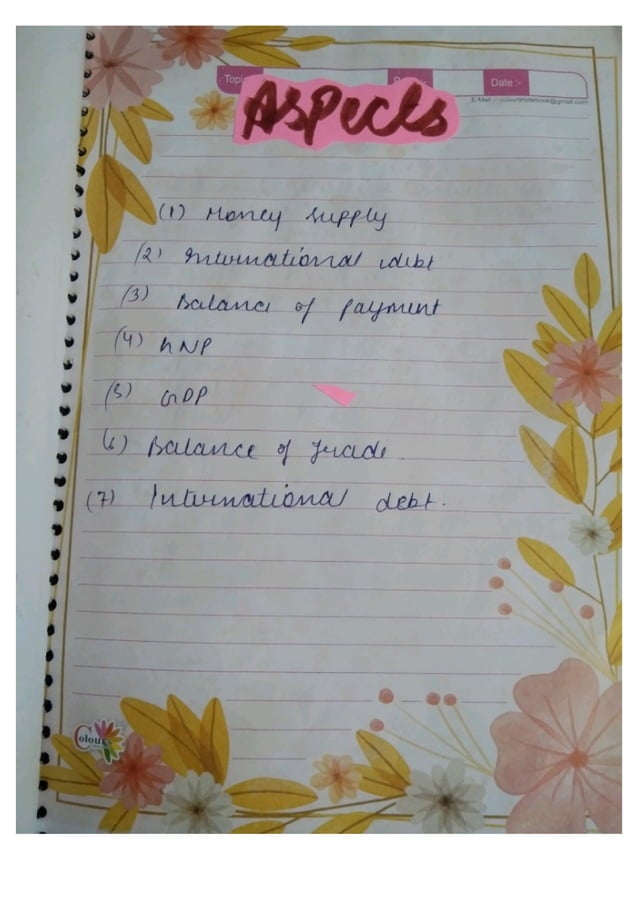 Topic
Date :-
E-Mail :- coloursnotebook@gmail.com
Aspects
(1) Money supply
(2) International debt
(3) Balance of payment
(4) GNP
(5) GDP
(6) Balance of Trade
(7) International debt.
Colours